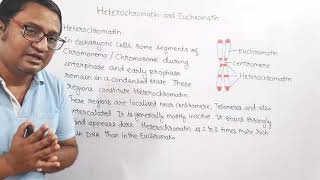 Heterochromatin and Euchromatin
Heterochromatin
In eukaryotic cells, some segments of
Chromonema / Chromosome during
interphase and early prophase
remain in a condensed state. These
regions constitute Heterochromatin.
These regions are localised near Centromere, Telomeres and also
intercalated. It is generally mostly inactive. It stains strongly
and appears dark. Heterochromatin is 2 to 3 times more rich
in DNA than in the Euchromatin.
Euchromatin
centromere
Heterochromatin